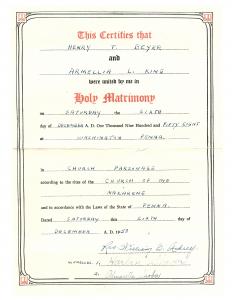 This Certifies that
HENRY T. BEYER
and
ARMELLIA L. KING
were united by me in
Holy Matrimony
on SATURDAY the SIXTH
day of DECEMBER A. D. One Thousand Nine Hundred and FIFTY EIGHT
at WASHINGTON PENNA.
in CHURCH PARSONAGE
according to the rites of the CHURCH OF THE
NAZARENE
and in accordance with the Laws of the State of PENNA.
Dated SATURDAY this SIXTH day of
DECEMBER A. D. 1958
Rev. William B.
WITNESSES